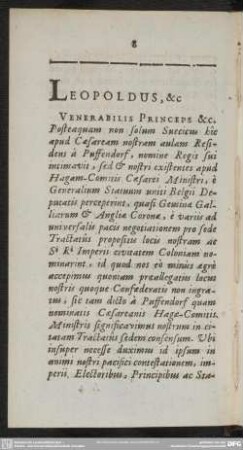 8
LEOPOLDUS, &c
VENERABILIS PRINCEPS &c.
Posteaquam non solum Suecicus hic
apud Cæsaream nostram aulam Resi-
dens à Puffendorf, nomine Regis sui
intimavit, sed & nostri existentes apud
Hagam-Comitis Cæsarei Ministri, è
Generalium Statuum uniti Belgii De-
putatis perceperint, quasi Geminæ Gal-
liarum & Angliæ Coronæ, è variis ad
universalis pacis negotiationem pro sede
Tractatûs propositis locis nostram ac
Sⁱ Rⁱ Imperii civitatem Coloniam no-
minarint, id quod nos eò minùs ægrè
accepimus quoniam præallegatus locus
nostris quoque Confœderatis non ingra-
tus, sic tam dicto à Puffendorf quam
nominatis Cæsareanis Hagæ-Comitis.
Ministris significavimus nostrum in ci-
tatam Tractatûs sedem consensum. Ubi
insuper necesse duximus id ipsum in
animi nostri pacifici contestationem, im-
perii, Electoribus, Principibus ac Sta-